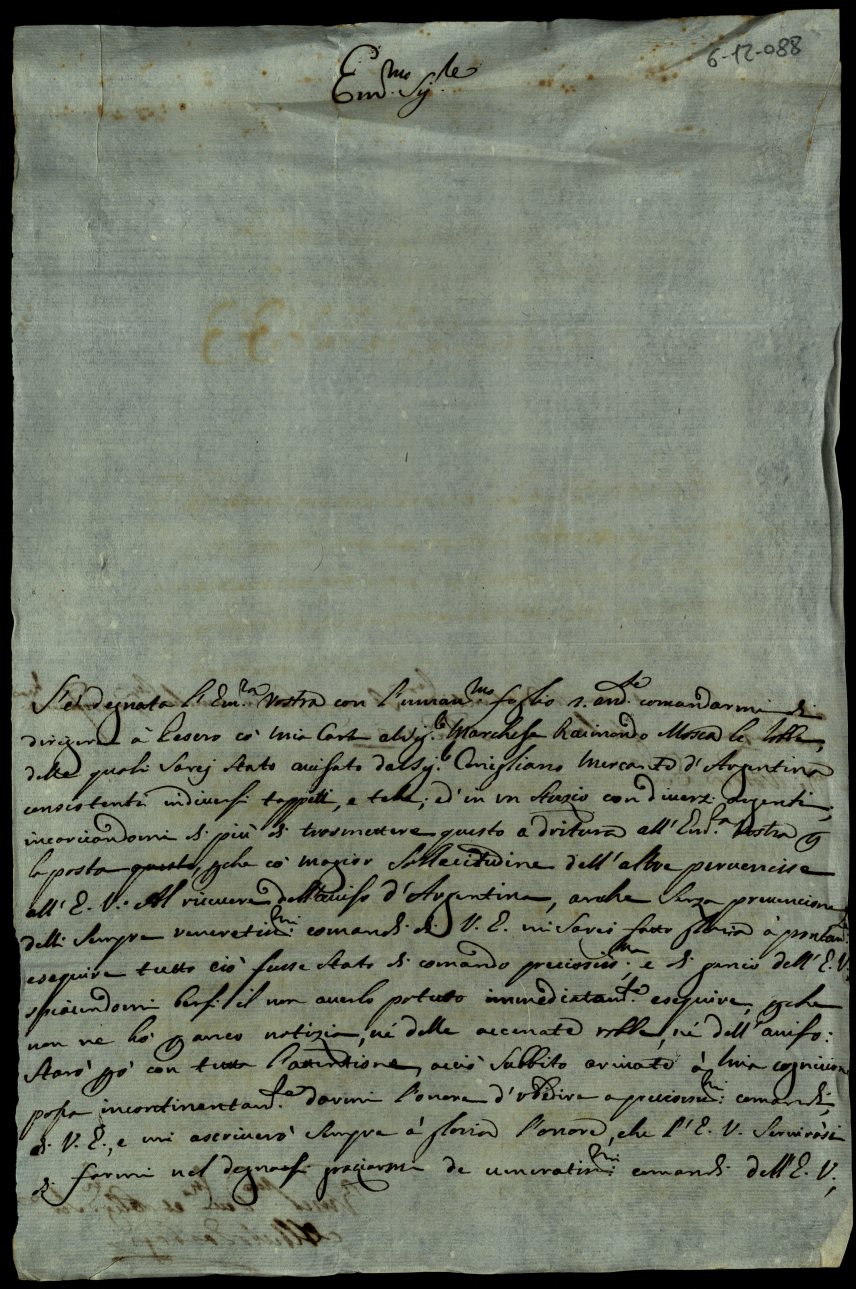 6-12-088
Em.mo Sig.re
S'è degnata l'Em.za Vostra con l'uman.mo foglio comandarmi di
dirigere à Pesero cò mia Carta al Sig.r Marchese Raimondo Mosca le robbe,
delle quali sarej stato avisato dal Sig.r Conigliano Mercante d'Argentina
consistenti in diversi tappeti, e tele, ed' in un Stuzio con diversi argenti,
incaricandomi di più di trasmettere questo a dritura all'Em.za Vostra p
la posta questo, pche cò magior sollecitudine dell'altre pervenisse
all'E. V. Al ricevere dell'aviso d'Argentina, anche senza prevencione
delli sempre veneratis.mi comandi di V. E. mi sarei fatto gloria à pontal.
eseguire tutto ciò fusse stato di comando preciosis.mo, e di gencio dell'E. V.
spiacendomi bensi il non averlo potuto immediatam.te eseguire, pche
non ne hò p anco notizia, né delle accenate robbe, né dell'aviso:
Starò pò con tutta l'attentione, acciò subbito arivate à mia cognicione
possa incontinentam.te darmi l'onore d'ubbidire a preciosis.mi comandi
di V. E., e mi ascriverò sempre à gloria l'onore, che l'E. V. servirassi
di farmi nel degnarsi graciarmi de veneratis.mi comandi dell'E. V.,